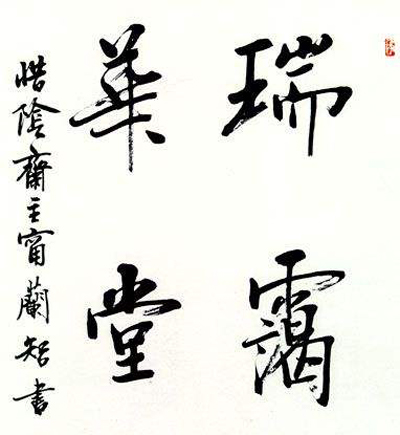 瑞靄
華堂
惜陰齋主甯蘭智書